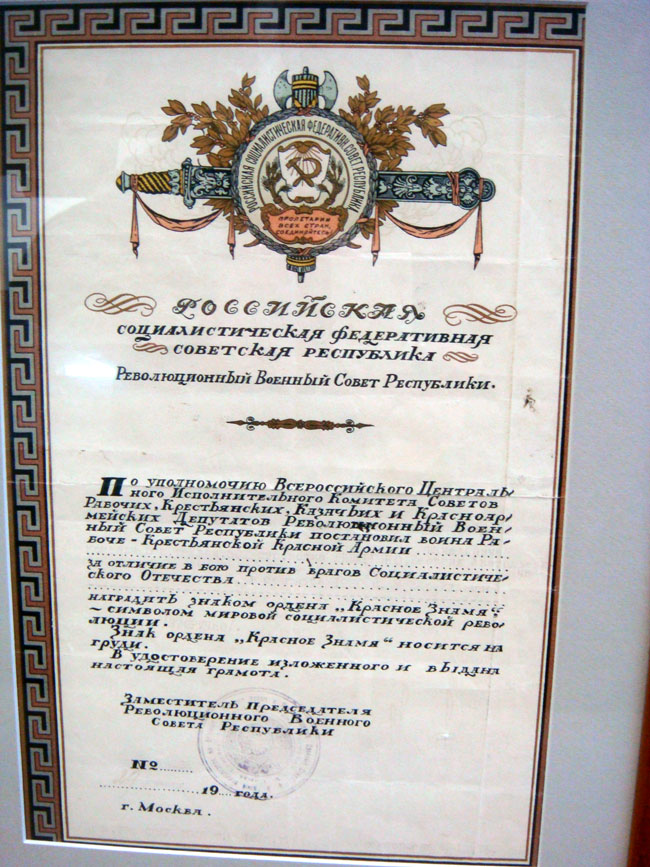 РОССИЙСКАЯ СОЦИАЛИСТИЧЕСКАЯ ФЕДЕРАТИВН. СОВЕТ. РЕСПУБЛИКА
ПРОЛЕТАРИИ
ВСЕХ СТРАН,
СОЕДИНЯЙТЕСЬ!
РОССИЙСКАЯ
СОЦИАЛИСТИЧЕСКАЯ ФЕДЕРАТИВНАЯ
СОВЕТСКАЯ РЕСПУБЛИКА
РЕВОЛЮЦИОННЫЙ ВОЕННЫЙ СОВЕТ РЕСПУБЛИКИ.
ПО УПОЛНОМОЧИЮ ВСЕРОССИЙСКОГО ЦЕНТРАЛЬ-
НОГО ИСПОЛНИТЕЛЬНОГО КОМИТЕТА СОВЕТОВ
РАБОЧИХ, КРЕСТЬЯНСКИХ, КАЗАЧЬИХ И КРАСНОАР-
МЕЙСКИХ ДЕПУТАТОВ РЕВОЛЮЦИОННЫЙ ВОЕН-
НЫЙ СОВЕТ РЕСПУБЛИКИ ПОСТАНОВИЛ ВОИНА РА-
БОЧЕ-КРЕСТЬЯНСКОЙ КРАСНОЙ АРМИИ
ЗА ОТЛИЧИЕ В БОЮ ПРОТИВ ВРАГОВ СОЦИАЛИСТИЧЕ-
СКОГО ОТЕЧЕСТВА
НАГРАДИТЬ ЗНАКОМ ОРДЕНА „КРАСНОЕ ЗНАМЯ“
~ СИМВОЛОМ МИРОВОЙ СОЦИАЛИСТИЧЕСКОЙ РЕВО-
ЛЮЦИИ.
ЗНАК ОРДЕНА „КРАСНОЕ ЗНАМЯ“ НОСИТСЯ НА
ГРУДИ.
В УДОСТОВЕРЕНИЕ ИЗЛОЖЕННОГО И ВЫДАНА
НАСТОЯЩАЯ ГРАМОТА.
ЗАМЕСТИТЕЛЬ ПРЕДСЕДАТЕЛЯ
РЕВОЛЮЦИОННОГО ВОЕННОГО
СОВЕТА РЕСПУБЛИКИ
№ ........
................19....ГОДА.
Г. МОСКВА.